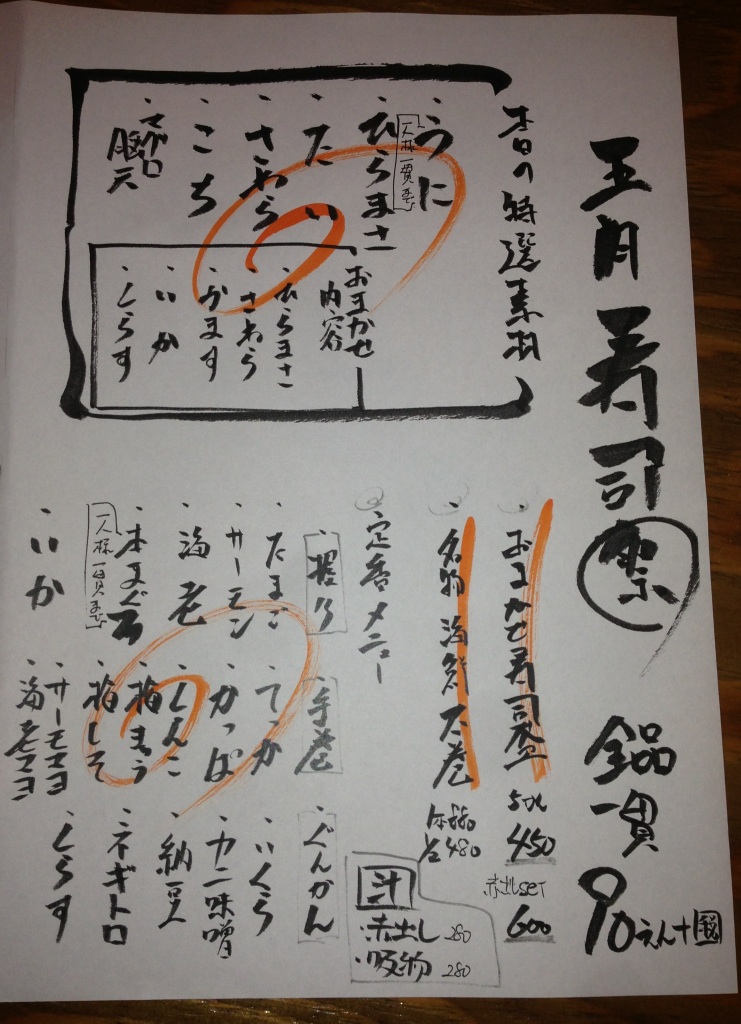 五月寿司祭
全品一貫90えん+税
本日の特選素材
・うに
一人様一貫まで
・ひらまさ
・たい
・さわら
・こち
・マグロ脳天
おまかせ内容
・ひらまさ
・さわら
・かます
・いか
・しらす
・おまかせ寿司盛
5カン
450
赤出しSET
600
・名物海鮮太巻
1本880
1/2 480
定番メニュー
・握り
・たまご
・サーモン
・海老
・本まぐろ
一人様一貫まで
・いか
・手巻
・てっか
・かっぱ
・しんこ
・梅きゅう
・梅しそ
・サーモマヨ
・海老マヨ
・ぐんかん
・いくら
・カニ味噌
・納豆
・ネギトロ
・しらす
汁
・赤出し 280
・吸物 280